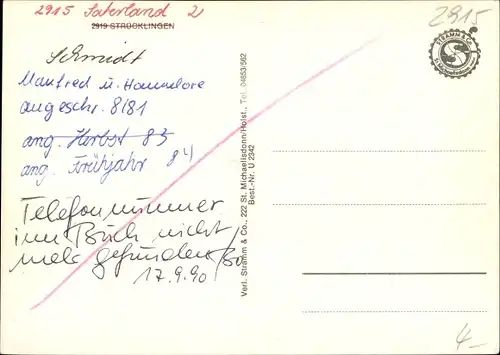 2915 Saterland 2
2919 STRÜCKLINGEN
2915
STRAMM & Co.
St. Michaelisdonn
Schmidt
Manfred u. Hannelore
angeschr. 8/81
ang. Herbst 83
ang. Frühjahr 84
Telefonnummer
im Buch nicht
mehr gefunden
17.9.90
Verl. Stramm & Co., 222 St. Michaelisdonn/Holst., Tel. 04853/562
Best.-Nr. U 2342
4-